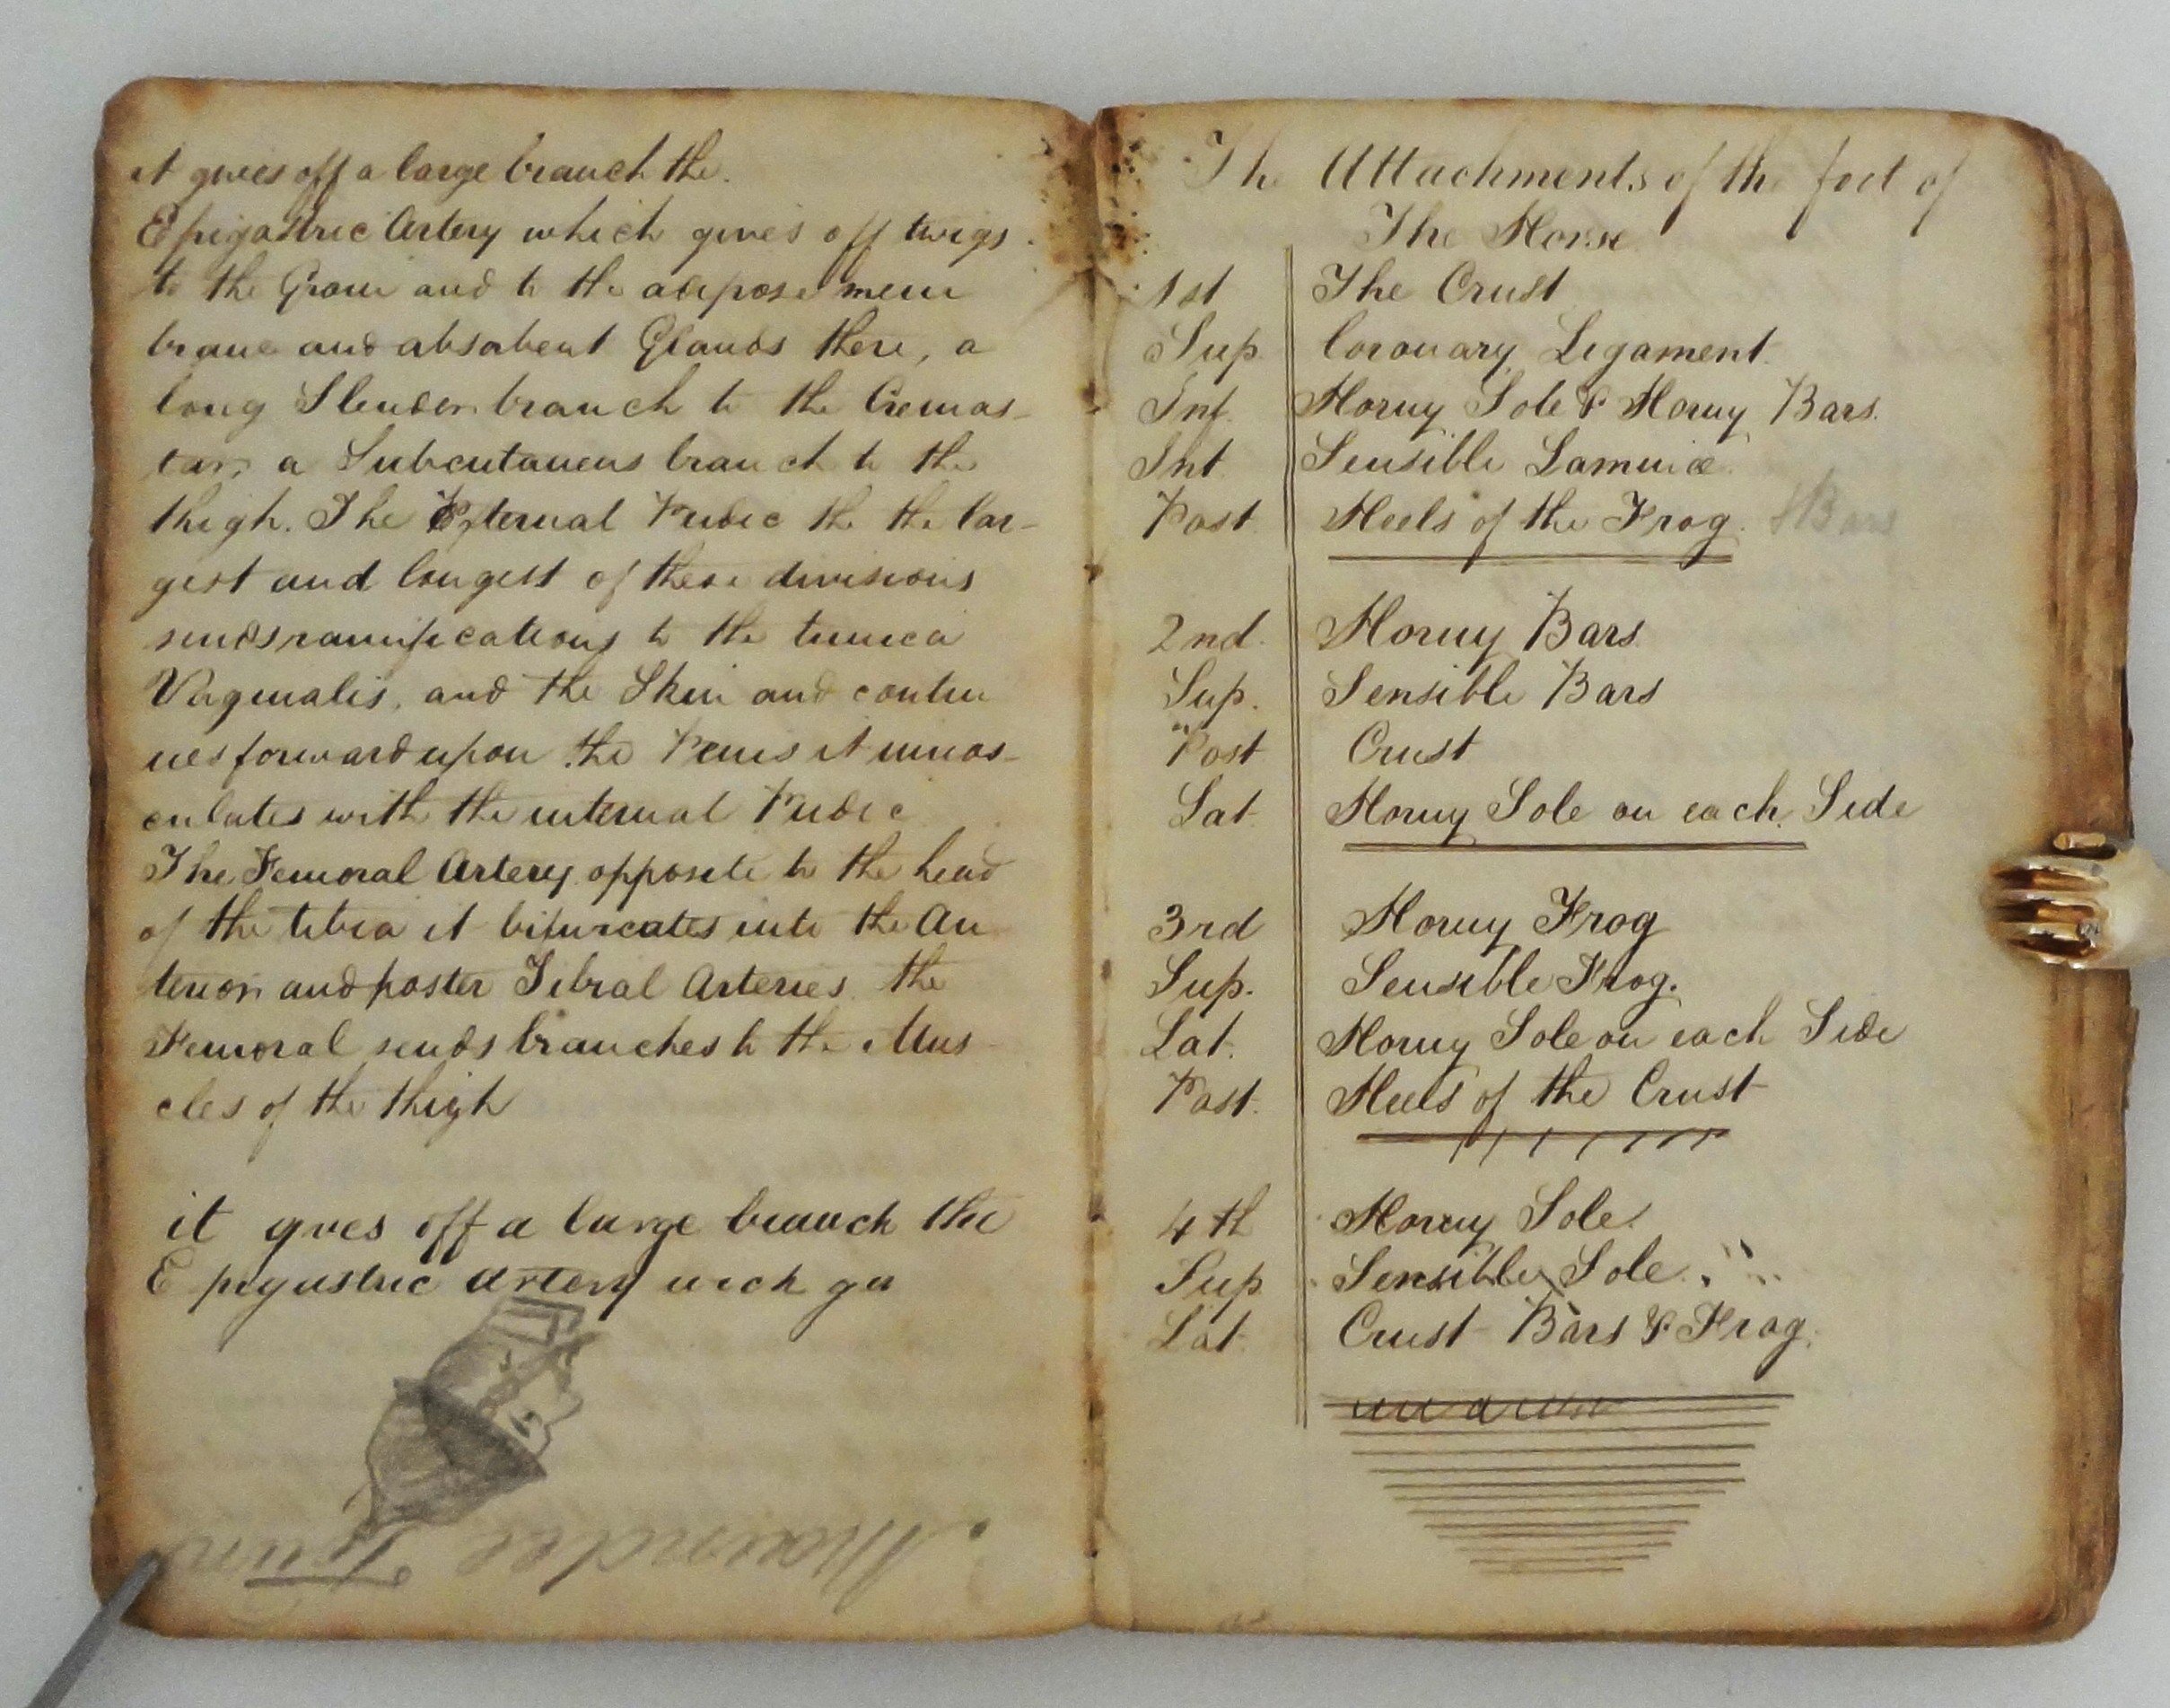 it gives off a large branch the.
Epigastric Artery which gives off twigs
to the Groin and to the adipose mem
brane and absorbent Glands there, a
long Slender branch to the Cremas-
ter, a Subcutaneus branch to the
thigh. The External Pudic the the lar-
gest and longest of these divisions
sends ramifications to the tunica
Vaginalis, and the Skin and contin
ues forward upon the Penis it innos-
culates with the internal Pudic
The Femoral Artery opposite to the head
of the tibia it bifurcates into the An
terior and poster Tibial Arteries the
Femoral sends branches to the Mus-
cles of the thigh
it gves off a large branch the
Epigustric artery wich ga
The Attachments of the foot of
The Horse
1st The Crust
Sup Coronary Ligament.
Inf. Horny Sole & Horny Bars.
Int. Sensible Laminæ.
Post Heels of the Frog. & Bars
2nd. Horny Bars.
Sup. Sensible Bars
Post Crust
Lat Horny Sole on each Side
3rd Horny Frog
Sup. Sensible Frog.
Lat. Horny Sole on each Side
Post. Heels of the Crust
4th Horny Sole.
Sup Sensible Sole.
Lat. Crust Bars & Frog.